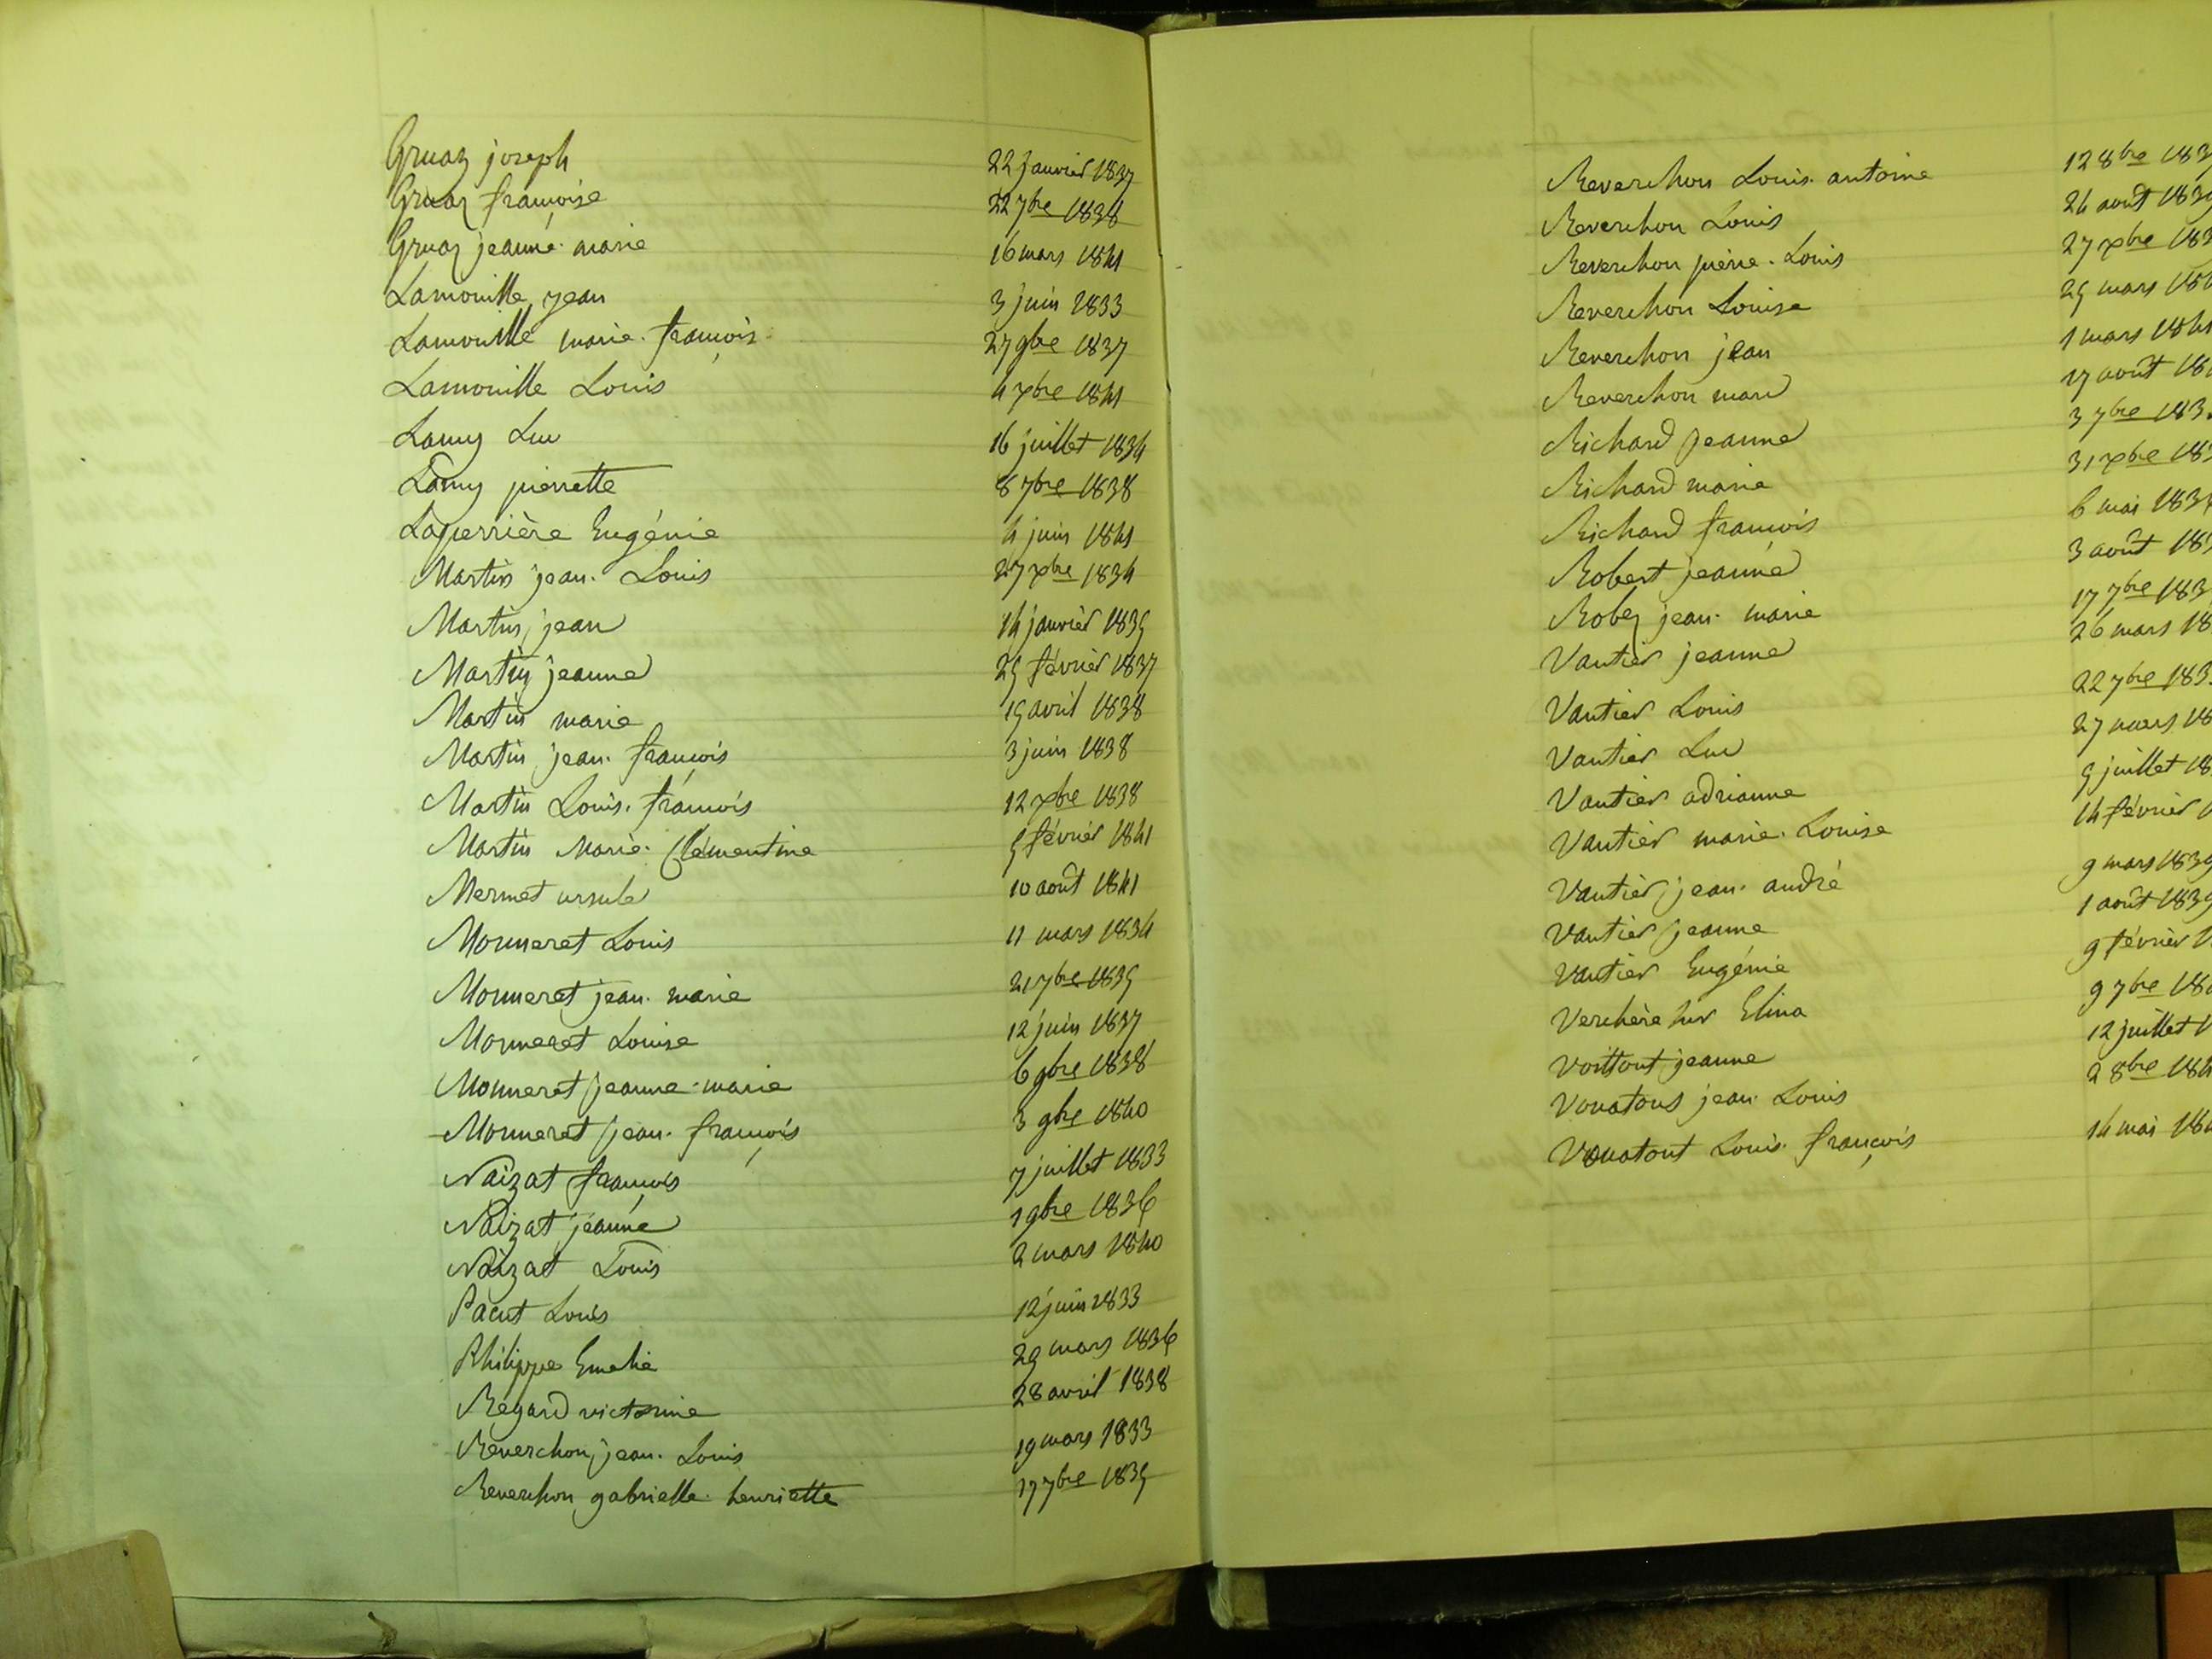 Gruaz joseph 22 janvier 1837
Gruaz françoise 22 7bre 1838
Gruaz jeanne. marie 16 mars 1841
Lamouille jean 3 juin 1833
Lamouille marie. françois 27 9bre 1837
Lamouille Louis 4 xbre 1841
Lamy Luc 16 juillet 1834
Lamy pierrette 8 7bre 1838
Laperrière Eugénie 4 juin 1841
Martin jean. Louis 27 xbre 1834
Martin jean 14 janvier 1835
Martin jeanne 25 février 1837
Martin marie 15 avril 1838
Martin jean. françois 3 juin 1838
Martin Louis. françois 12 xbre 1838
Martin Marie. Clémentine 5 février 1841
Mermet ursule 10 août 1841
Monneret Louis 11 mars 1834
Monneret jean. marie 21 7bre 1835
Monneret Louise 12 juin 1837
Monneret jeanne. marie 6 9bre 1838
Monneret jean. françois 3 9bre 1840
Naizat françois 7 juillet 1833
Naizat jeanne 1 9bre 1836
Naizat Louis 2 mars 1840
Pacut Louis 12 juin 1833
Philippe Emelie 29 mars 1836
Régard victorine 28 avril 1838
Reverchon jean. Louis 19 mars 1833
Reverchon gabrielle. henriette 17 7bre 1835
Reverchon Louis. antoine 12 8bre 183
Reverchon Louis 24 août 183
Reverchon pierre. Louis 27 xbre 183
Reverchon Louise 25 mars 18
Reverchon jean 1 mars 1841
Reverchon marie 17 août 18
Richard jeanne 3 7bre 183
Richard marie 31 xbre 183
Richard françois 6 mai 183
Robert jeanne 3 août 183
Robez jean. marie 17 7bre 183
Vautier jeanne 26 mars 18
Vautier Louis 22 7bre 183
Vautier Luc 27 mars 18
Vautier adrianne 5 juillet 18
Vautier marie. Louise 14 février 1
Vautier jean. andré 9 mars 1839
Vautier jeanne 1 août 1839
Vautier Eugénie 9 février 1
Verchère Elina 9 7bre 18
Voittout jeanne 12 juillet 1
Vouatous jean. Louis 2 8bre 184
Vouatout Louis. françois 14 mai 184